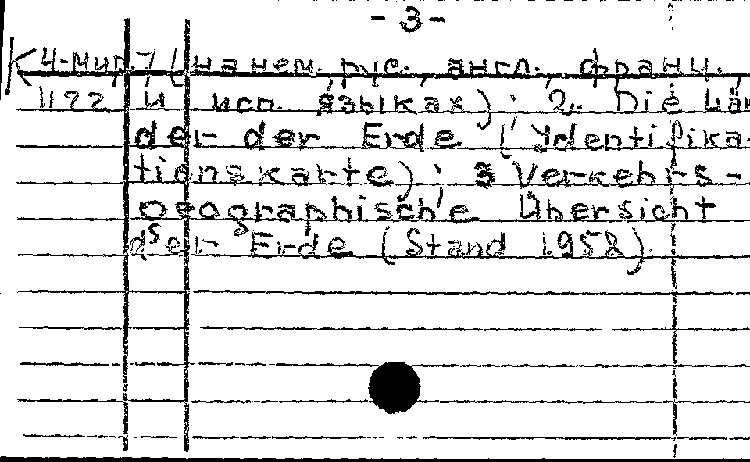 - 3 -
К 4-мир.7 (на нем., рус., англ., франц.,
1172 и исп. языках); 2. Die Län
der der Erde (Ydentifika-
tionskarte); 3 Verkehrs-
geographische Übersicht
der Erde (Stand 1958).